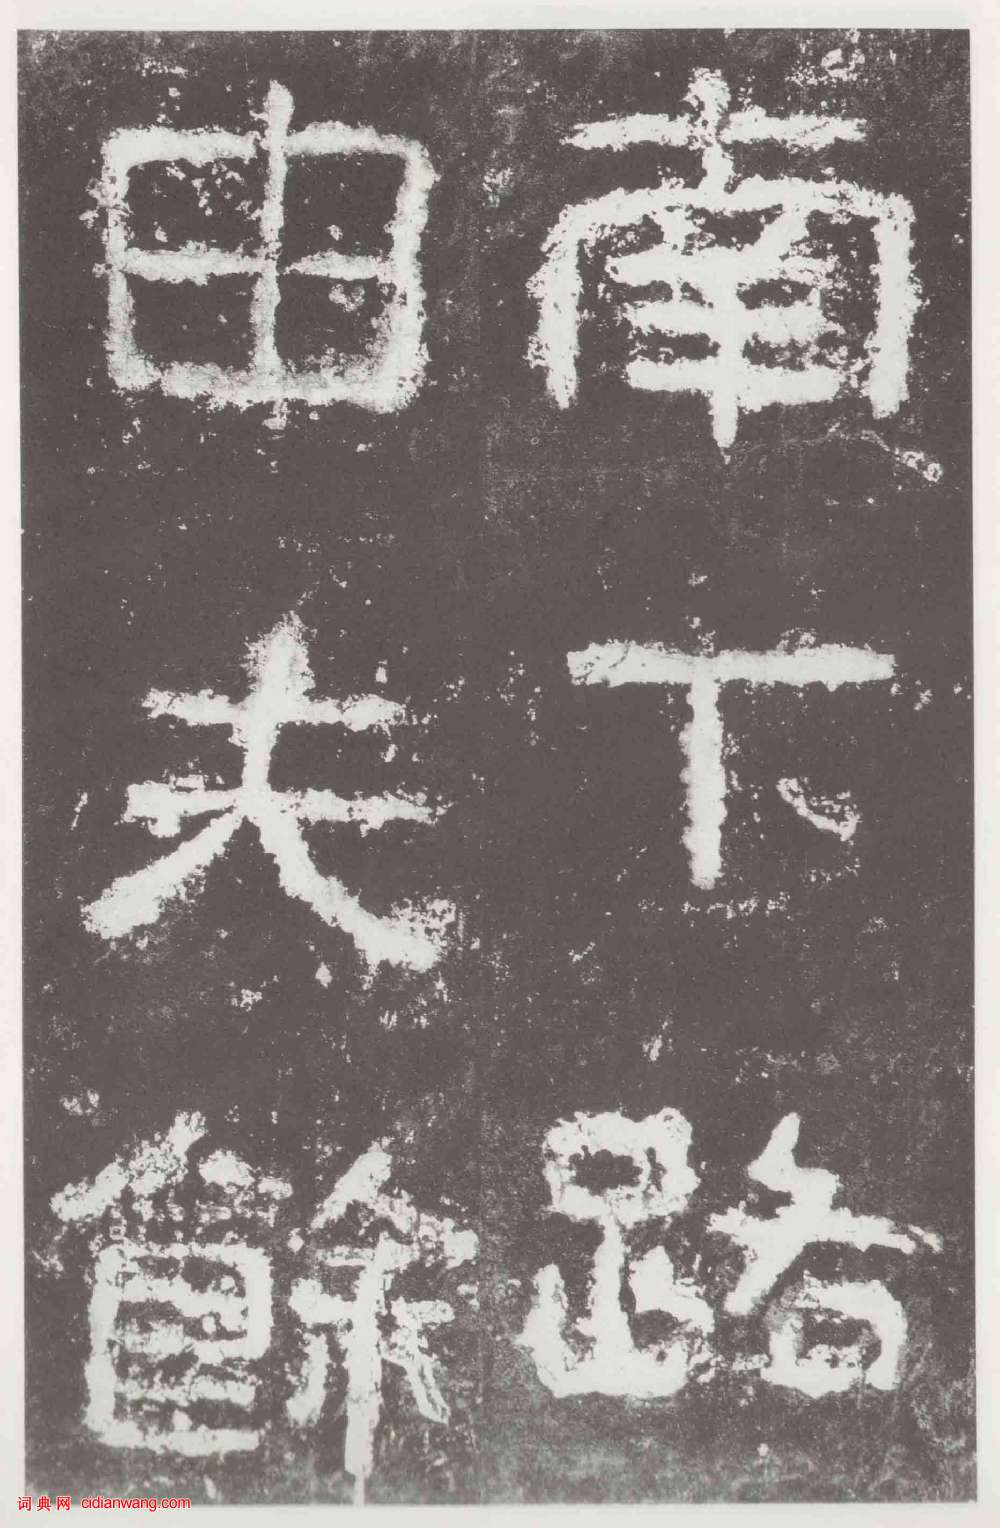 南下路
由夫餘
词典网 cidianwang.com